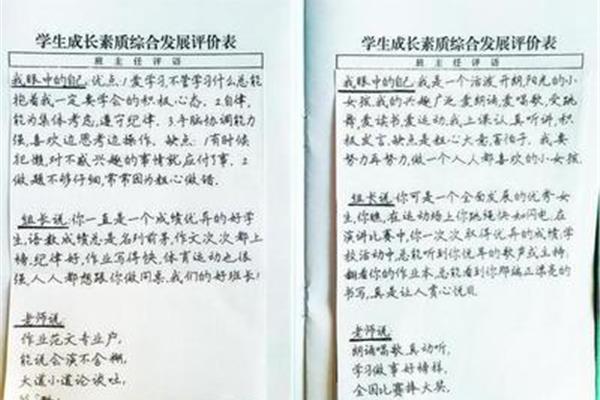 学生成长素质综合发展评价表
班主任评语
我眼中的自己:优点:1爱学习,不管学习什么总能
抱着我一定要学会的积极心态。2自律,
能为集体考虑,遵守纪律。3手脑协调能力
强,喜欢边思考边操作。缺点:1有时候
犯懒,对不感兴趣的事情就应付了事。2
做题不够仔细,常常因为粗心做错。
组长说:你一直是一个成绩优异的好学
生,语数成绩总是名列前茅,作文次次都上
榜,纪律好,作业写得快,体育运动也很
强,人人都想跟你做同桌,我们的好班长!
老师说:
作业范文专业户,
能说会演不含糊,
大道小道论谈吐,
学生成长素质综合发展评价表
班主任评语
我眼中的自己:我是一个活波开朗,阳光的小
女孩,我的兴趣广泛,爱朗诵,爱唱歌,爱跳
舞,爱读书,爱运动,我上课认真听讲,积
极发言,缺点是粗心大意,害怕子。我要
努力再努力,做一个人人都喜欢的小女孩。
组长说:你可是一个全面发展的优秀女
生,你瞧,在运动场上你跳绳快如闪电,在
演讲比赛中,你一次次取得优异的成绩,学
校活动中,总能听到你优美的歌声或主持;
翻看你的作业本,总能看到你那端正漂亮的
书写,真是让人赏心悦目。
老师说:
朗诵唱歌真动听,
学习做事好榜样,
全国比赛捧大奖,